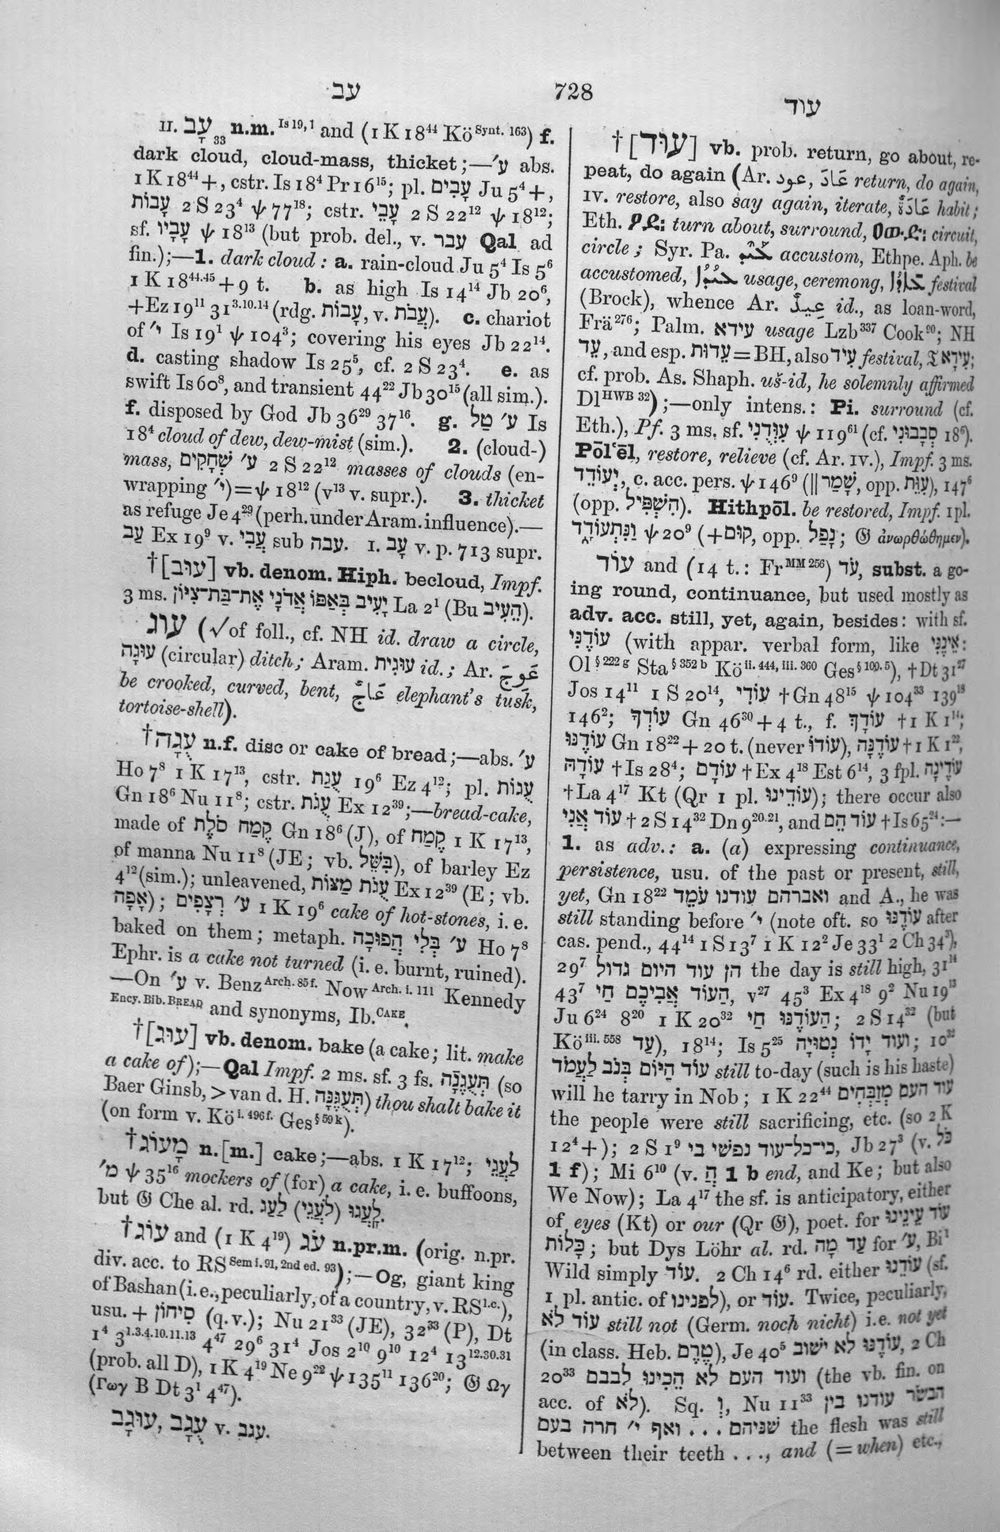 עב
728
עוד
II. עָב 33 n.m. Is 19, 1 and (1 K 18⁴⁴ Kö Synt. 163) f.
dark cloud, cloud-mass, thicket;—ע׳ abs.
1 K 18⁴⁴+, cstr. Is 18⁴ Pr 16¹⁵; pl. עָבִים Ju 5⁴+,
עָבוֹת 2 S 23⁴ ψ 77¹⁸; cstr. עָבֵי 2 S 22¹² ψ 18¹²;
sf. עָבָיו ψ 18¹³ (but prob. del., v. עבר Qal ad
fin.);—1. dark cloud: a. rain-cloud Ju 5⁴ Is 5⁶
1 K 18⁴⁴·⁴⁵ + 9 t. b. as high Is 14¹⁴ Jb 20⁶,
+Ez 19¹¹ 31³·¹⁰·¹⁴ (rdg. עָבוֹת, v. עֲבֹת). c. chariot
of י׳ Is 19¹ ψ 104³; covering his eyes Jb 22¹⁴.
d. casting shadow Is 25⁵, cf. 2 S 23⁴. e. as
swift Is 60⁸, and transient 44²² Jb 30¹⁵ (all sim.).
f. disposed by God Jb 36²⁹ 37¹⁶. g. ע׳ טַל Is
18⁴ cloud of dew, dew-mist (sim.). 2. (cloud-)
mass, ע׳ שְׁחָקִים 2 S 22¹² masses of clouds (en-
wrapping י׳) = ψ 18¹² (v¹³ v. supr.). 3. thicket
as refuge Je 4²⁹ (perh. under Aram. influence).—
עב Ex 19⁹ v. עֲבִי sub עבה. I. עָב v. p. 713 supr.
†[עוּב] vb. denom. Hiph. becloud, Impf.
3 ms. יָעִיב בְּאַפּוֹ אֲדֹנָי אֶת־בַּת־צִיּוֹן La 2¹ (Bu הֵעִיב).
עוג (√of foll., cf. NH id. draw a circle,
עוּגָה (circular) ditch; Aram. עוּגִית id.; Ar. عَوِجَ
be crooked, curved, bent, عَاجٌ elephant's tusk,
tortoise-shell).
†עֻגָה n.f. disc or cake of bread;—abs. ע׳
Ho 7⁸ 1 K 17¹³, cstr. עֻגַת 19⁶ Ez 4¹²; pl. עֻגוֹת
Gn 18⁶ Nu 11⁸; cstr. עֻגֹת Ex 12³⁹;—bread-cake,
made of קֶמַח סֹלֶת Gn 18⁶ (J), of קֶמַח 1 K 17¹³,
of manna Nu 11⁸ (JE; vb. בִּשֵּׁל), of barley Ez
4¹² (sim.); unleavened, עֻגֹת מַצּוֹת Ex 12³⁹ (E; vb.
אָפָה); ע׳ רְצָפִים 1 K 19⁶ cake of hot-stones, i.e.
baked on them; metaph. ע׳ בְּלִי הֲפוּכָה Ho 7⁸
Ephr. is a cake not turned (i.e. burnt, ruined).
—On ע׳ v. Benz Arch. 85 f. Now Arch. i. 111 Kennedy
Ency. Bib. BREAD and synonyms, Ib. CAKE.
†[עוּג] vb. denom. bake (a cake; lit. make
a cake of);—Qal Impf. 2 ms. sf. 3 fs. תְּעֻגֶנָּה (so
Baer Ginsb, > van d. H. תְּעֻגֶּנָּה) thou shalt bake it
(on form v. Kö i. 496 f. Ges § 59 k).
†מָעוֹג n.[m.] cake;—abs. 1 K 17¹²; לַעֲגֵי
מ׳ ψ 35¹⁶ mockers of (for) a cake, i.e. buffoons,
but 𝔊 Che al. rd. לָעֲגוּ (לַעֲגֵי) לָעַג.
†עוֹג and (1 K 4¹⁹) עֹג n.pr.m. (orig. n.pr.
div. acc. to RS Sem i. 91, 2nd ed. 93);—Og, giant king
of Bashan (i.e., peculiarly, of a country, v. RS l.c.),
usu. + סִיחוֹן (q.v.); Nu 21³³ (JE), 32³³ (P), Dt
1⁴ 3¹·³·⁴·¹⁰·¹¹·¹³ 4⁴⁷ 29⁶ 31⁴ Jos 2¹⁰ 9¹⁰ 12⁴ 13¹²·³⁰·³¹
(prob. all D), 1 K 4¹⁹ Ne 9²² ψ 135¹¹ 136²⁰; 𝔊 Ωγ
(Γωγ B Dt 3¹ 4⁴⁷).
עוּגָב, עֻגָב v. עגב.
†[עוּד] vb. prob. return, go about, re-
peat, do again (Ar. عود, عَادَ return, do again,
IV. restore, also say again, iterate, عَادَةٌ habit;
Eth. ዖደ፡ turn about, surround, ዐውድ፡ circuit,
circle; Syr. Pa. accustom, Ethpe. Aph. be
accustomed, usage, ceremony, festival
(Brock), whence Ar. عِيدٌ id., as loan-word,
Frä²⁷⁶; Palm. עידא usage Lzb³³⁷ Cook⁹⁰; NH
עד, and esp. עֵדוּת = BH, also עִיד festival, 𝔗 עִידָא;
cf. prob. As. Shaph. uš-id, he solemnly affirmed
Dl HWB 32);—only intens.: Pi. surround (cf.
Eth.), Pf. 3 ms. sf. עִוְּדֻנִי ψ 119⁶¹ (cf. סְבָבוּנִי 18⁶).
Pōl‘ēl, restore, relieve (cf. Ar. IV.), Impf. 3 ms.
יְעוֹדֵד, c. acc. pers. ψ 146⁹ (|| שָׁמַר, opp. עִוֵּת), 147⁶
(opp. הִשְׁפִּיל). Hithpōl. be restored, Impf. 1 pl.
וַנִּתְעוֹדָד ψ 20⁹ (+קוּם, opp. נָפַל; 𝔊 ἀνωρθώθημεν).
עוֹד and (14 t.: Fr MM 256) עֹד, subst. a go-
ing round, continuance, but used mostly as
adv. acc. still, yet, again, besides: with sf.
עוֹדֶנִּי (with appar. verbal form, like אֵינֶנִּי:
Ol § 222 g Sta § 352 b Kö ii. 444, iii. 360 Ges § 100. 5), †Dt 31²⁷
Jos 14¹¹ 1 S 20¹⁴, עוֹדִי †Gn 48¹⁵ ψ 104³³ 139¹⁸
146²; עוֹדְךָ Gn 46³⁰ + 4 t., f. עוֹדָךְ †1 K 1¹⁴;
עוֹדֶנּוּ Gn 18²² + 20 t. (never עוֹדוֹ), עוֹדֶנָּה †1 K 1²²,
עוֹדָהּ †Is 28⁴; עוֹדָם †Ex 4¹⁸ Est 6¹⁴, 3 fpl. עוֹדֵינָה
†La 4¹⁷ Kt (Qr 1 pl. עוֹדֵינוּ); there occur also
עוֹד אֲנִי †2 S 14³² Dn 9²⁰·²¹, and עוֹד הֵם †Is 65²⁴:—
1. as adv.: a. (a) expressing continuance,
persistence, usu. of the past or present, still,
yet, Gn 18²² ואברהם עודנו עֹמֵד and A., he was
still standing before י׳ (note oft. so עוֹדֶנּוּ after
cas. pend., 44¹⁴ 1 S 13⁷ 1 K 12² Je 33¹ 2 Ch 34³),
29⁷ הן עוד היום גדול the day is still high, 31¹⁴
43⁷ הַעוֹד אֲבִיכֶם חַי, v²⁷ 45³ Ex 4¹⁸ 9² Nu 19¹³
Ju 6²⁴ 8²⁰ 1 K 20³² הַעוֹדֶנּוּ חַי; 2 S 14³² (but
Kö iii. 558 עַד), 18¹⁴; Is 5²⁵ ועוד ידו נְטוּיָה; 10³²
עוֹד הַיּוֹם בְּנֹב לַעֲמֹד still to-day (such is his haste)
will he tarry in Nob; 1 K 22⁴⁴ עוד העם מְזַבְּחִים
the people were still sacrificing, etc. (so 2 K
12⁴+); 2 S 1⁹ כי־כל־עוד נפשי בי, Jb 27³ (v. כֹּל
1 f); Mi 6¹⁰ (v. הֲ 1 b end, and Ke; but also
We Now); La 4¹⁷ the sf. is anticipatory, either
of eyes (Kt) or our (Qr 𝔊), poet. for עוֹד עֵינֵינוּ
כָּלוֹת; but Dys Löhr al. rd. עַד מָה for ע׳, Bi¹
Wild simply עוֹד. 2 Ch 14⁶ rd. either עוֹדֵנוּ (sf.
1 pl. antic. of לפנינו), or עוֹד. Twice, peculiarly,
עוֹד לֹא still not (Germ. noch nicht) i.e. not yet
(in class. Heb. טֶרֶם), Je 40⁵ עוֹדֶנּוּ לֹא ישוב, 2 Ch
20³³ ועוד העם לֹא הֵכִינוּ לבבם (the vb. fin. on
acc. of לֹא). Sq. וְ, Nu 11³³ הבשר עודנו בין
שניהם ... ואף י׳ חרה בעם the flesh was still
between their teeth . . ., and (= when) etc.,